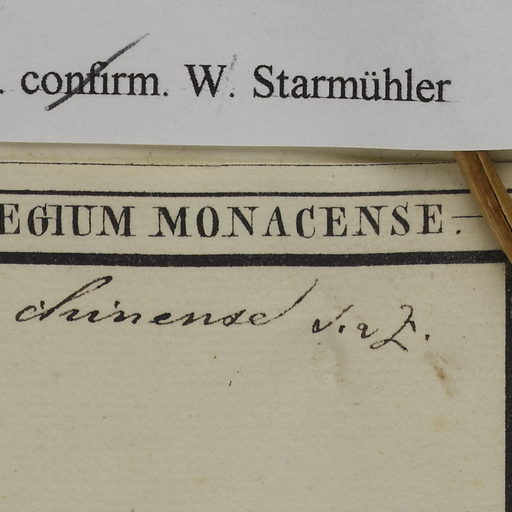 . confirm. W. Starmühler
EGIUM MONACENSE.
chinense S. et Z.